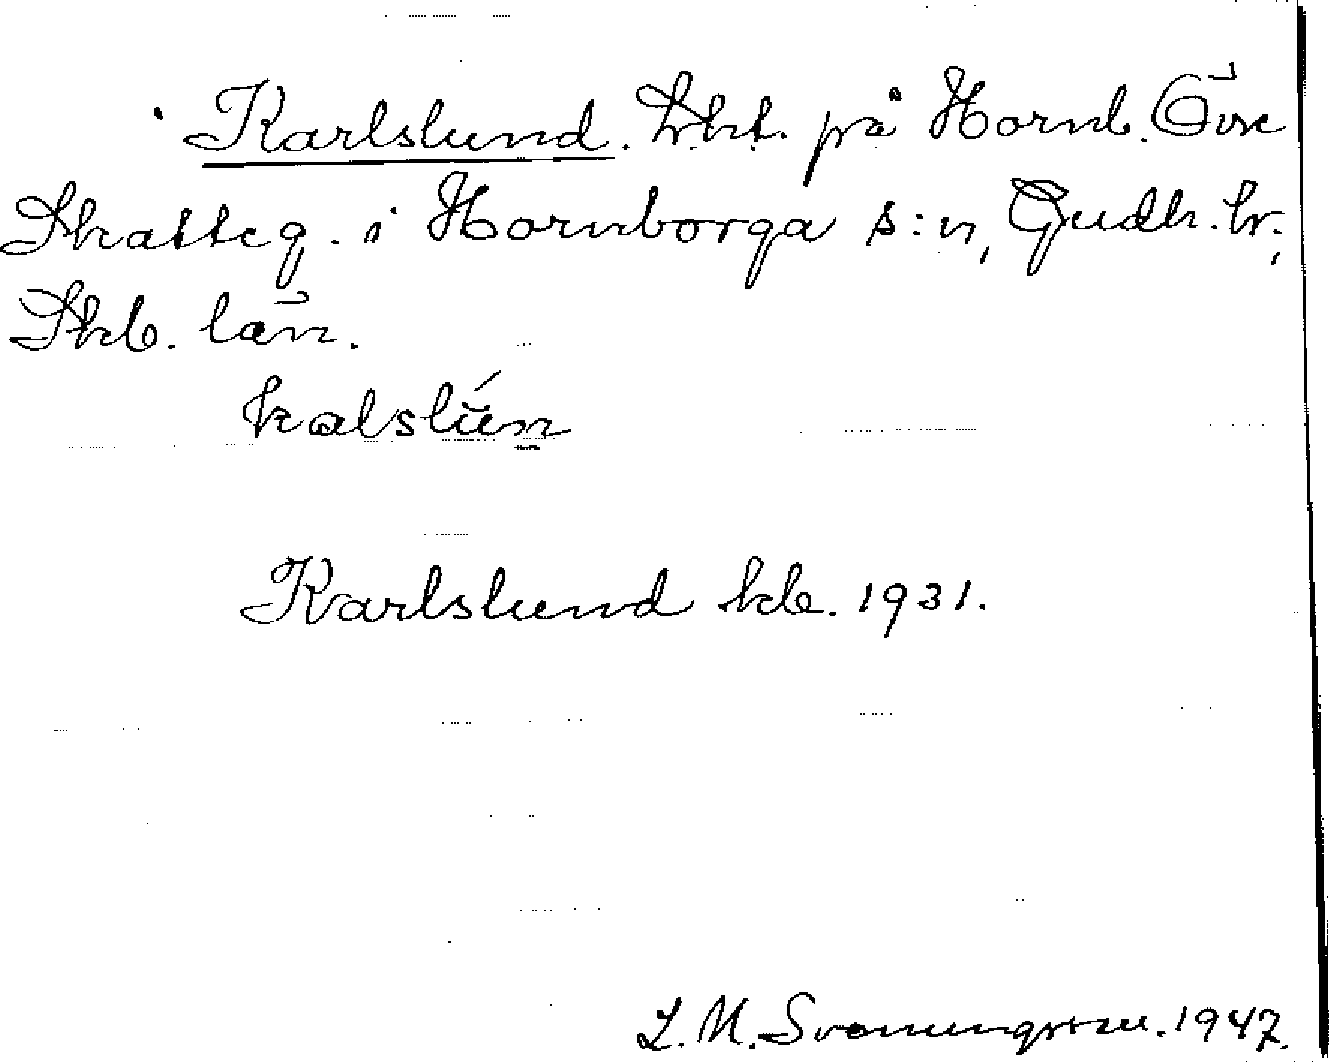 Karlslund. Lht. på Hornb. Övre
Skatteg. i Hornborga s:n, Gudh. hr.,
Skb. län.
kalslún
Karlslund kb. 1931.
L. M. Svenungsson. 1947.